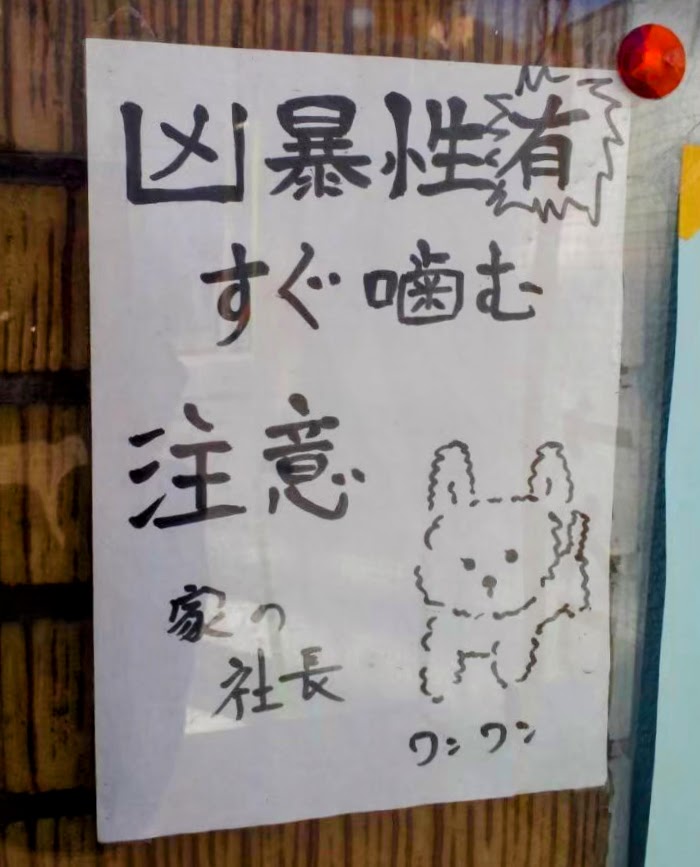 凶暴性有
すぐ噛む
注意
家の
社長
ワンワン